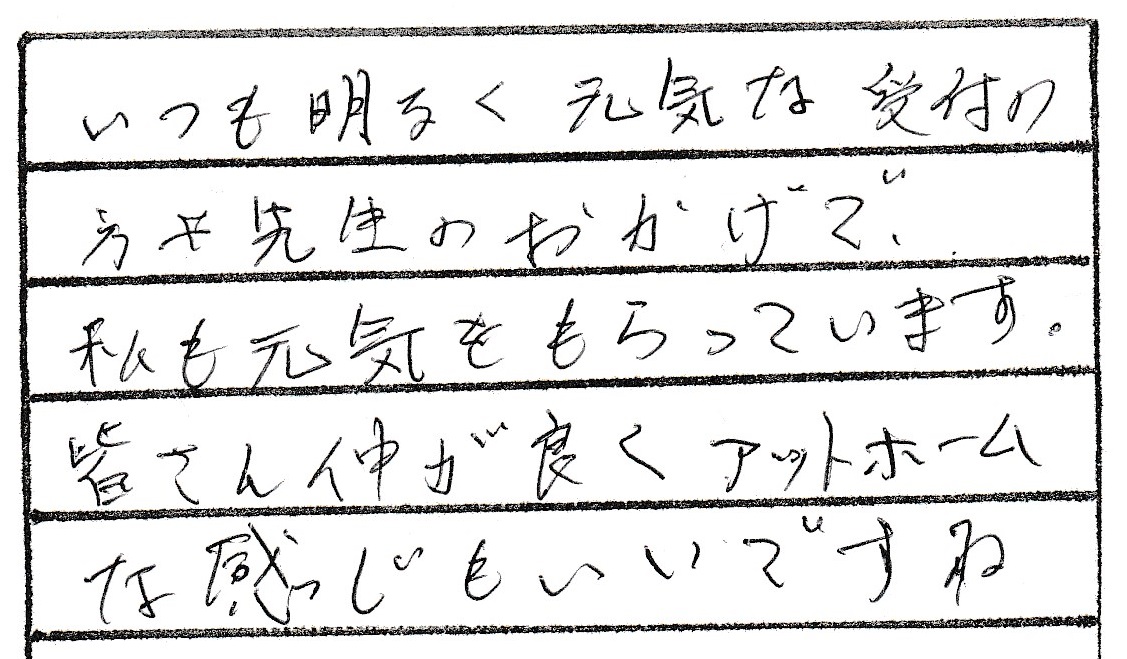 いつも明るく元気な受付の
方や先生のおかげで、
私も元気をもらっています。
皆さん仲が良くアットホーム
な感じもいいですね